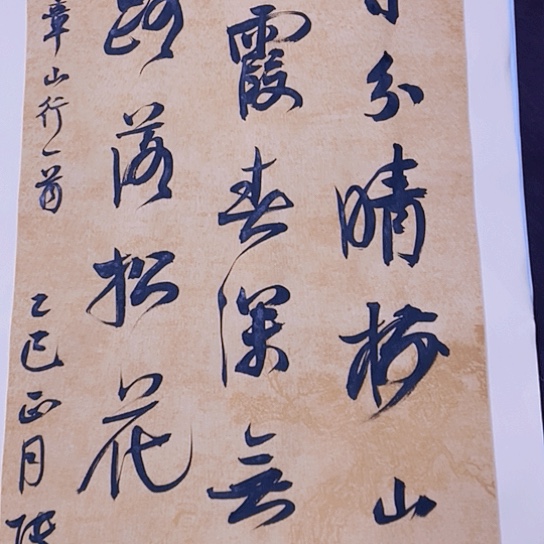 分晴樹山
霞春深無
路落松花
章山行一首
乙巳正月